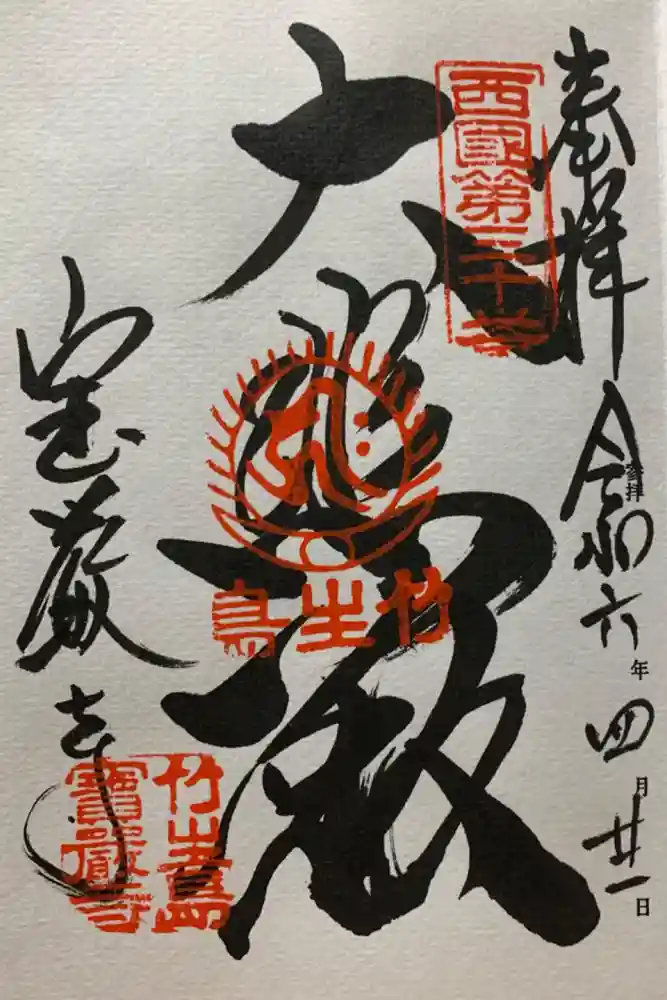 奉拝
参拝
令和六年四月廿一日
西國第三十番
大悲殿
竹生島
宝厳寺
竹生島
寶嚴寺